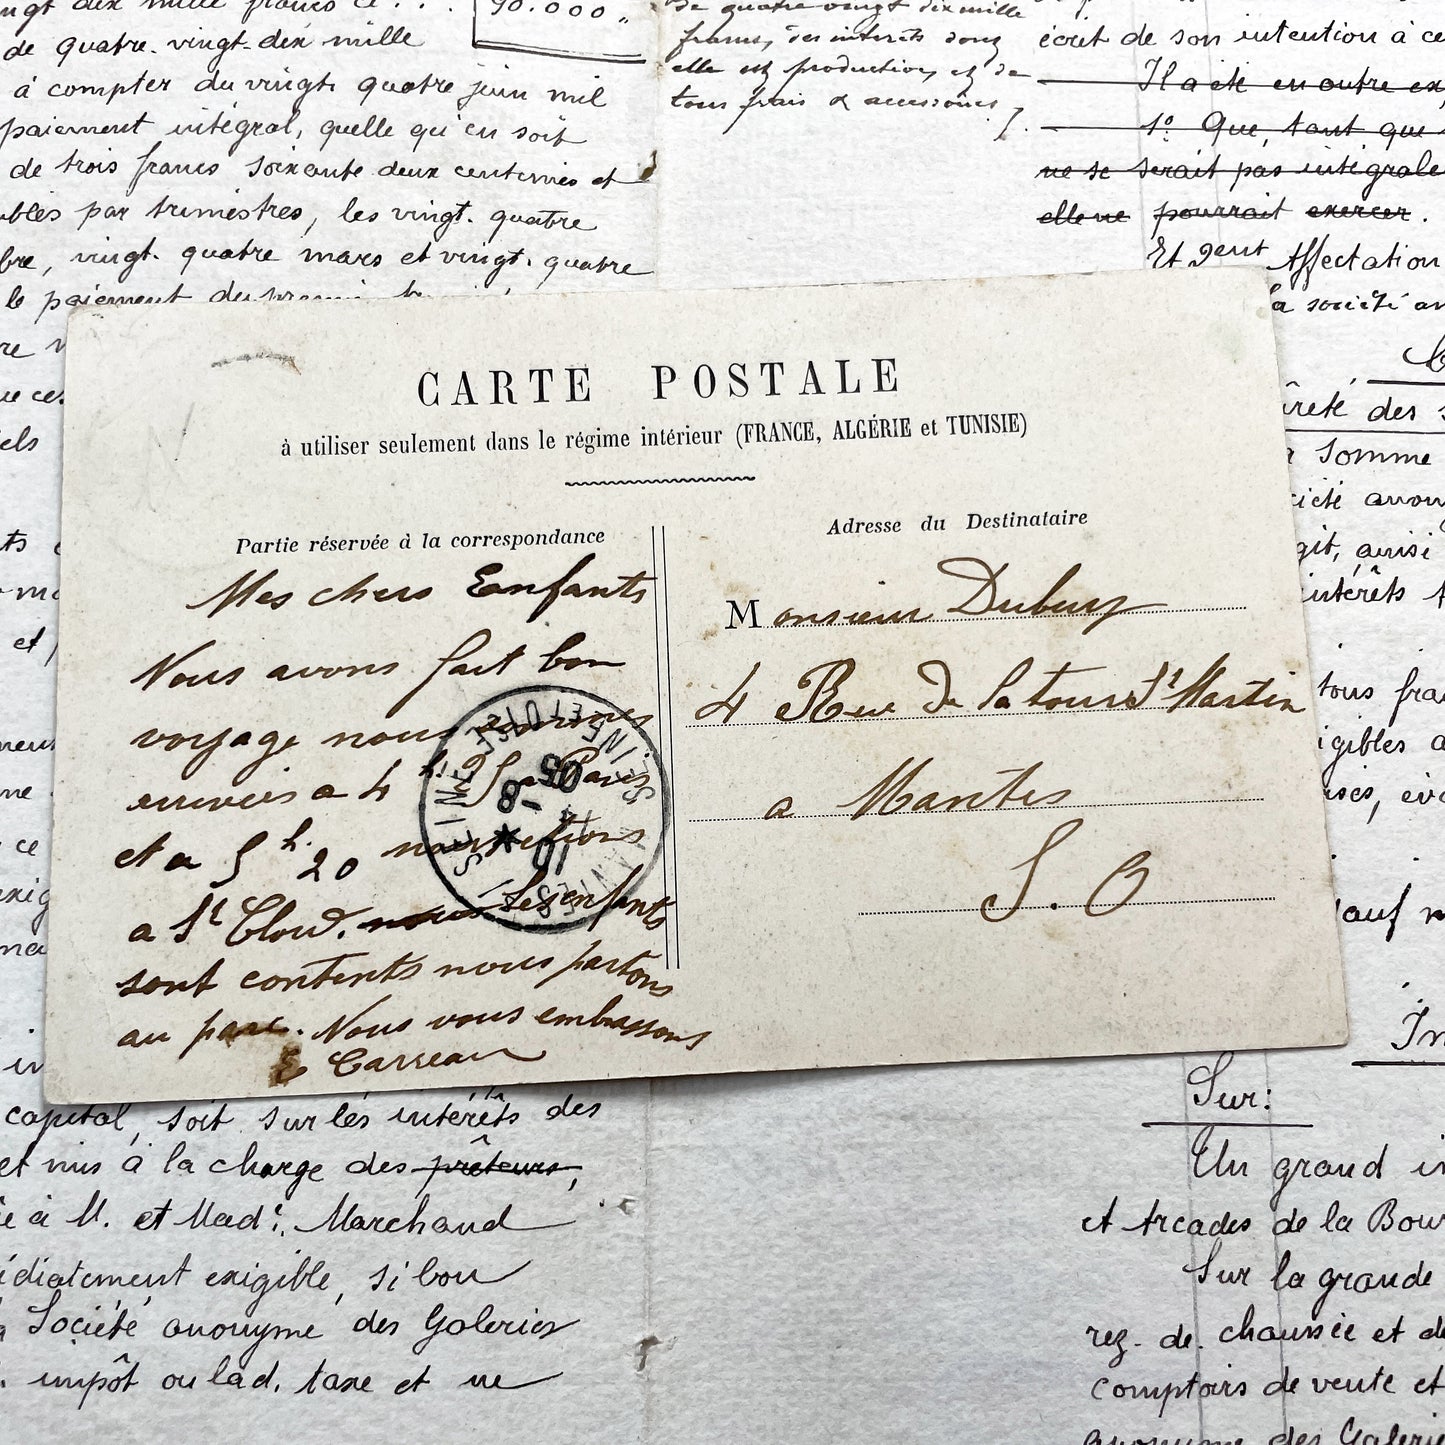 ngt dix mille francs ce . . .
90.000 "
de quatre-vingt-dix mille
à compter du vingt quatre juin mil
paiement intégral, quelle qu'en soit
de trois francs soixante deux centimes et
bles par trimestres, les vingt-quatre
bre, vingt-quatre mars et vingt-quatre
le paiement du
de quatre vingt dix mille
francs, des intérêts dont
elle est productive, et de
tous frais & accessoires
écrit de son intention à ce
Il a été en outre ex
1º Que, tant que
ne se serait pas intégrale
elle ne pourrait exercer.
Et Affectation
la société an
ûreté des s
somme
ciété anon
git, ainsi
intérêts
tous frai
xigibles a
auf
CARTE POSTALE
à utiliser seulement dans le régime intérieur (FRANCE, ALGÉRIE et TUNISIE)
Partie réservée à la correspondance
Mes chers Enfants
Nous avons fait bon
voyage nous sommes
arrivés a 4 h 25 a Paris
et a 5 h. 20 nous etions
a St Cloud. nous Les enfants
sont contents nous partons
au parc. Nous vous embrassons
E Carreau
Adresse du Destinataire
Monsieur Dubusy
4 Rue De la tour St Martin
a Mantes
S. O
SEINE ET OISE
8
05
capital, soit sur les intérêts des
et mis à la charge des prêteurs,
à M. et Made. Marchand
édiatement exigible, si bon
Société anonyme des Galeries
impôt ou lad. taxe et ne
Sur:
Un grand
et Arcades de la Bour
Sur la grande
rez-de-chaussée et de
comptoirs de vente et
anonyme des Galerie